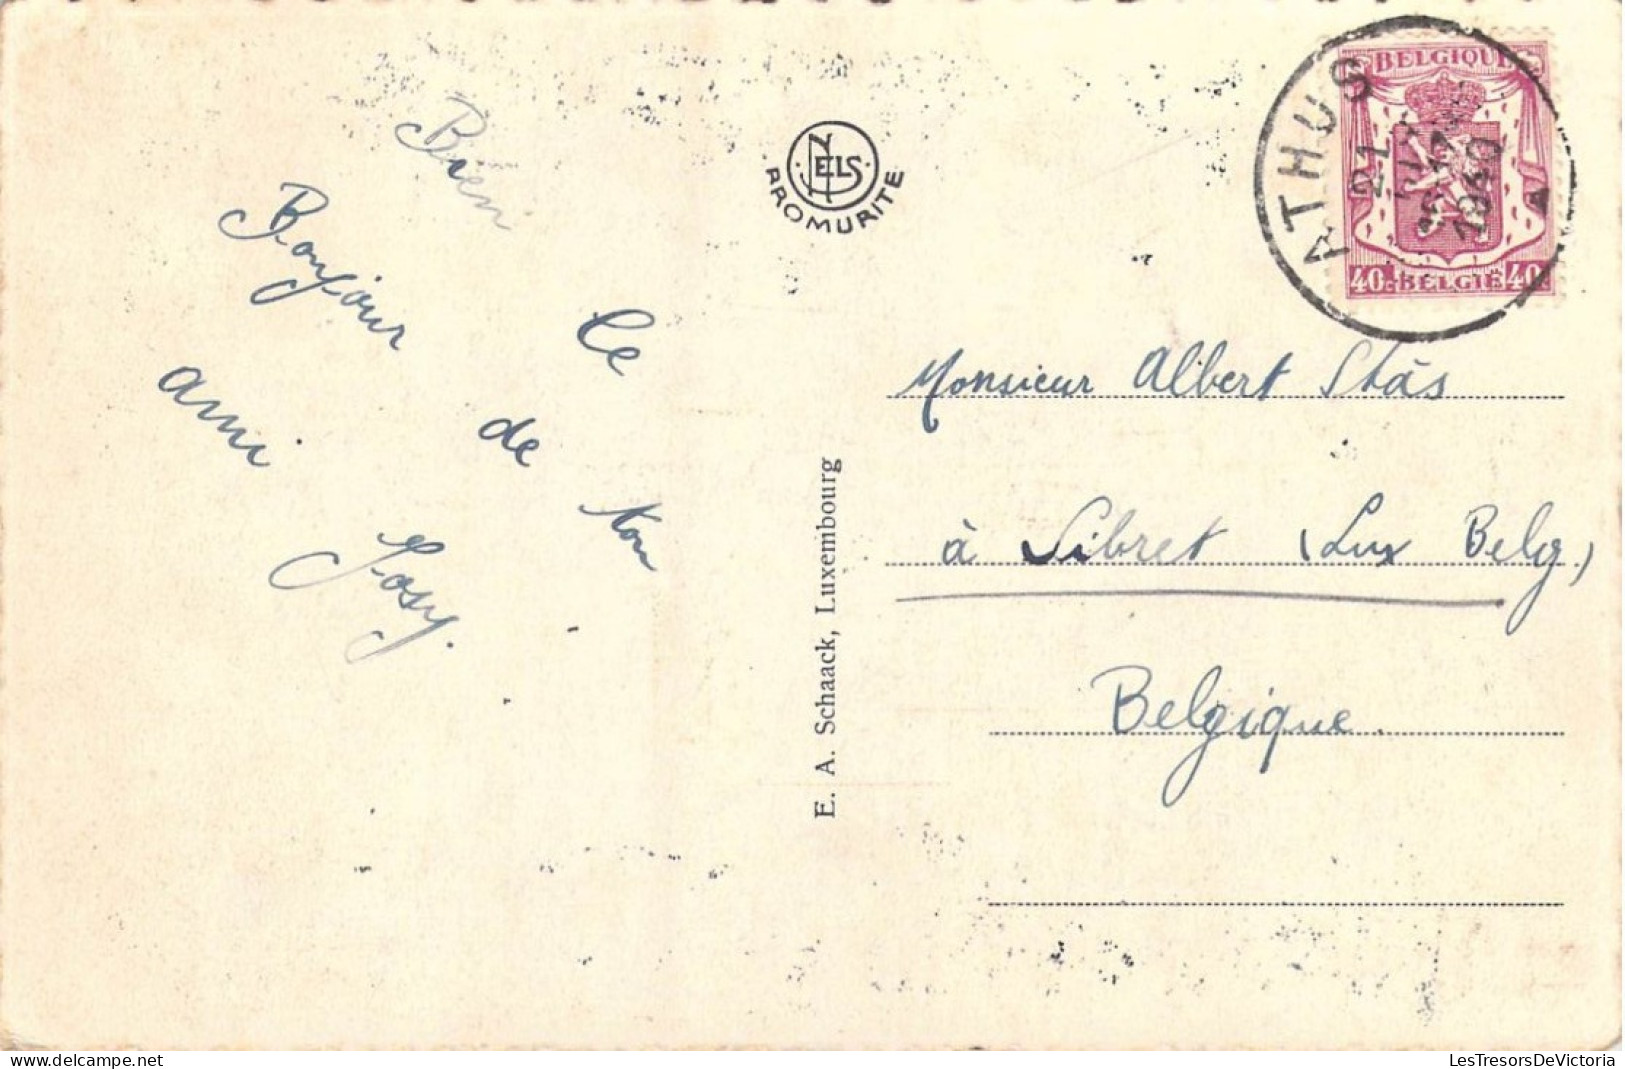 Bien le
Bonjour de ton
ami Josy.
NELS
PROMURITE
E. A. Schaack, Luxembourg
BELGIQUE
40c BELGIË 40c
ATHUS
21
1940
Monsieur Albert Stás
à Sibret (Lux Belg)
Belgique.
LesTresorsDeVictoria